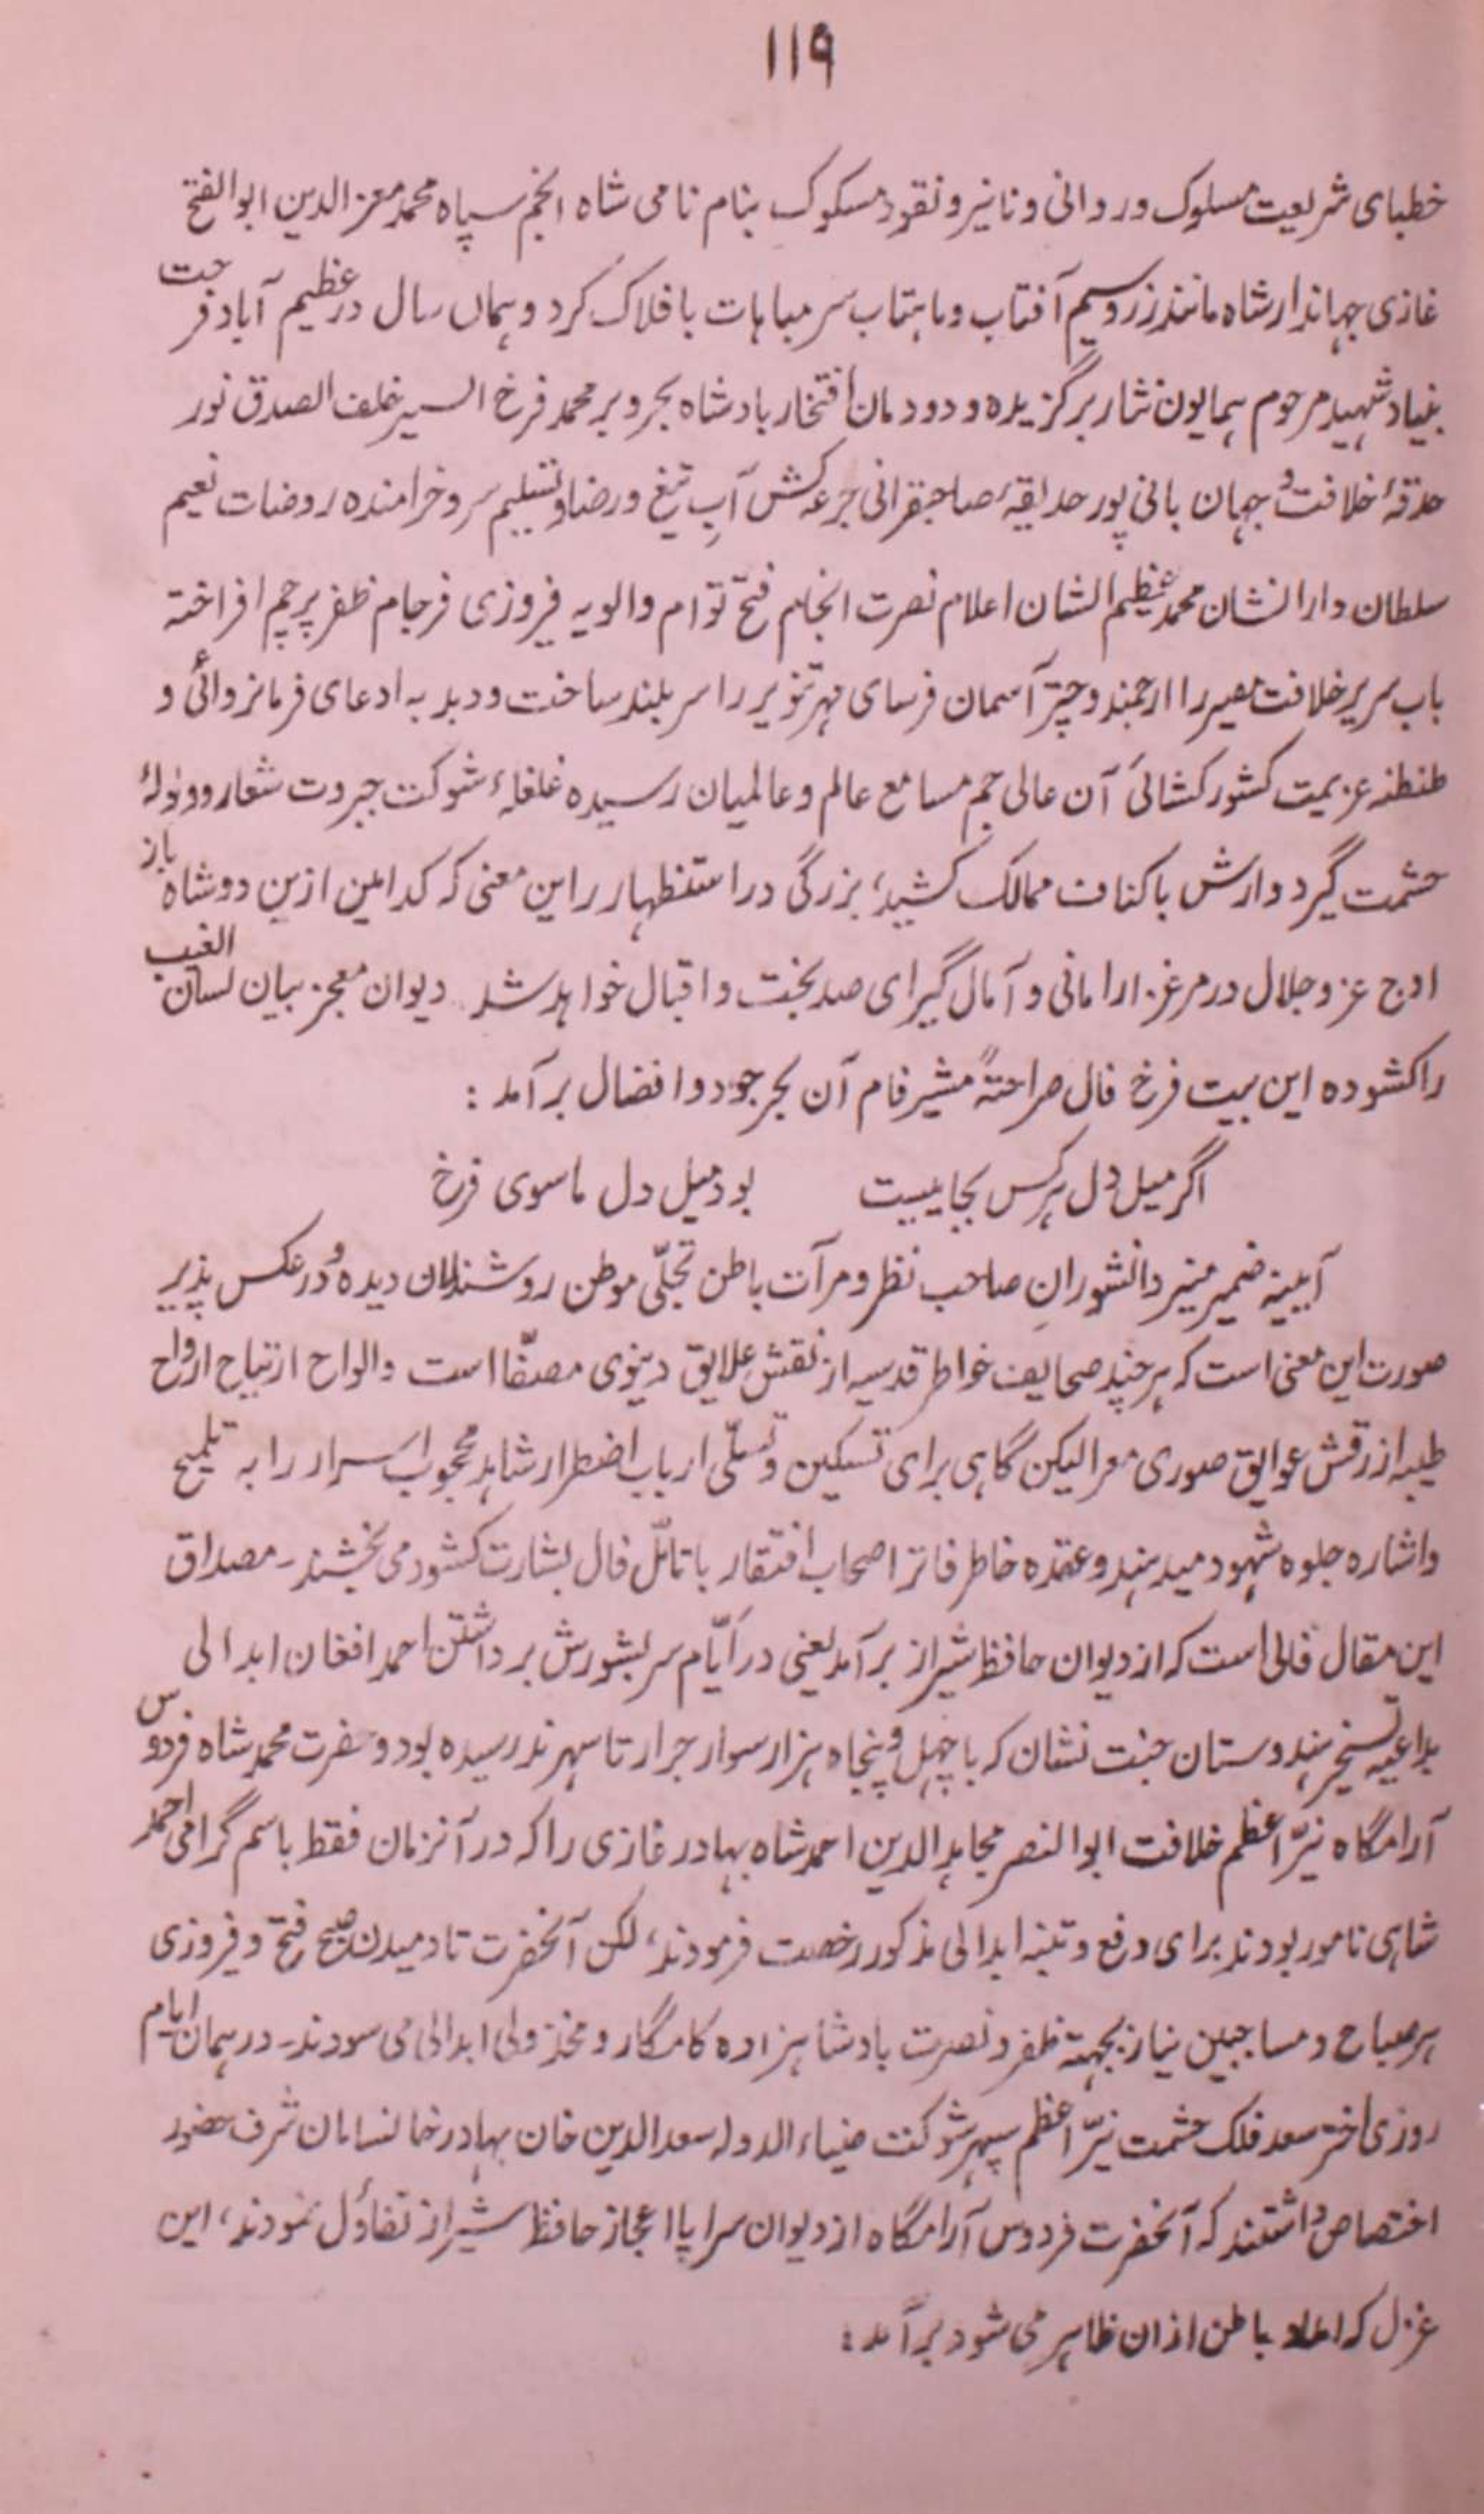 ۱۱۹
خطبای شریعت مسلوک ور وانی ونانیر و نقود مسکوک بنام نامی شاه انجم سپاه محمد معز الدین ابو الفتح
غازی جهاندار شاه مانند زر و سیم آفتاب و ماہتاب سر مباہات با فلاک کرد و ہماں سال در عظیم آباد فرحت
بنیاد شہید مرحوم ہمایون نثار برگزیده و دودمان افتخار بادشاه بحر و بر محمد فرخ السیر خلف الصدق نور
حدقۂ خلافت و جہان بانی پور حدیقۂ صاحبقرانی جرعہ کش آبِ تیغ و رضا و تسلیم سر و خرامنده روضات نعیم
سلطان دارا نشان محمد عظیم الشان اعلام نصرت انجام فتح توام والویہ فیروزی فرجام ظفر پرچم افراختہ
باب سریر خلافت مصیر را ارجمند و چتر آسمان فرسای مہر تنویر را سر بلند ساخت و دبدبہ ادعای فرمانروائی و
طنطنہ عزیمت کشور کشائی آن عالی جم مسامع عالم و عالمیان رسیده غلغلۂ شوکت جبروت شعار و ولولۂ
حشمت گیر د وارش باکناف ممالک کشید، بزرگی در استظہار را این معنی کہ کدامین ازین دو شاه باز
اوج عز و جلال در مرغزار امانی و آمال گیرای صد بخت و اقبال خواہد شد دیوان معجز بیان لسان الغیب
را کشوده این بیت فرخ فال صراحتۃً مشیر فام آن بحر جود و افضال برآمد :
اگر میل دل ہر کس بجاییست بود میل دل ما سوی فرخ
آیینہ ضمیر منیر دانشورانِ صاحب نظر و مرآت باطن تجلّی موطن روشندلان دیده ور عکس پذیر
صورت این معنی است کہ ہر چند صحایف خواطر قدسیہ از نقش علایق دینوی مصفّا است والواح ارتیاح ارواح
طیبہ از رقش عوایق صوری معرا لیکن گاہی برای تسکین و تسلّی ارباب اضطرار شاہد محجوب اسرار را بہ تلمیح
و اشاره جلوه شہود میدہند و عقده خاطر فاتر اصحاب افتقار با تامّل فال بشارت کشود می بخشند۔ مصداق
این مقال فالی است کہ از دیوان حافظ شیراز برآمد یعنی در ایّام سر بشورش برداشتن احمد افغان ابدالی
بداعیہ تسخیر ہندوستان جنت نشان کہ با چہل و پنجاه ہزار سوار جرار تا سہرند رسیده بود و حضرت محمد شاه فردوس
آرامگاه نیّر اعظم خلافت ابو النصر مجاہد الدین احمد شاه بہادر غازی را کہ در آنزمان فقط باسم گرامی احمد
شاہی نامور بودند برای دفع و تنبہ ابدالی مذکور رخصت فرمودند، لکن آنحضرت تا دمیدن صبح فتح و فیروزی
ہر صباح و مسا جبین نیاز بجہتہ ظفر و نصرت بادشاہزاده کامگار و مخذولی ابدالی می سودند۔ در ہمان ایام
روزی اختر سعد فلک حشمت نیّر اعظم سپہر شوکت ضیاء الدولہ سعد الدین خان بہادر خانسامان شرف حضور
اختصاص داشتند کہ آنحضرت فردوس آرامگاه از دیوان سراپا اعجاز حافظ شیراز تفاؤل نمودند، این
غزل کہ املاء باطن ازان ظاہر می شود برآمد :